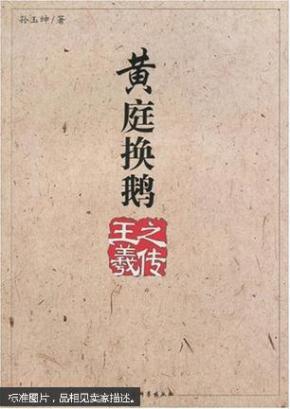 孙玉绅/著
黄庭换鹅
王羲之传
标准图片，品相见卖家描述。